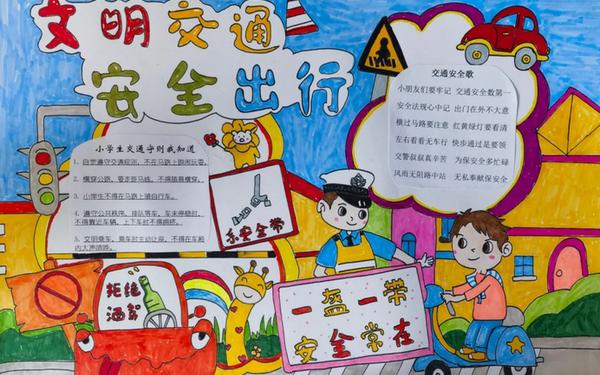 文明交通
安全出行
小学生交通守则我知道
1. 自觉遵守交通规则，不在马路上跑闹玩耍。
2. 横穿公路，要走斑马线，不得随意横穿。
3. 小学生不得在马路上骑自行车。
4. 遵守公共秩序，排队等车，车未停稳时，
不得靠近车辆，上下车时不得拥挤。
5. 文明乘车，乘车时主动让座，不得在车厢
内大声喧哗。
系安全带
交通安全歌
小朋友们要牢记 交通安全数第一
安全法规心中记 出门在外不大意
横过马路要注意 红黄绿灯要看清
左右看看无车行 快步通过是要领
交警叔叔真辛苦 为保安全多忙碌
风雨无阻路中站 无私奉献保安全
拒绝
酒驾
一盔一带
安全常在